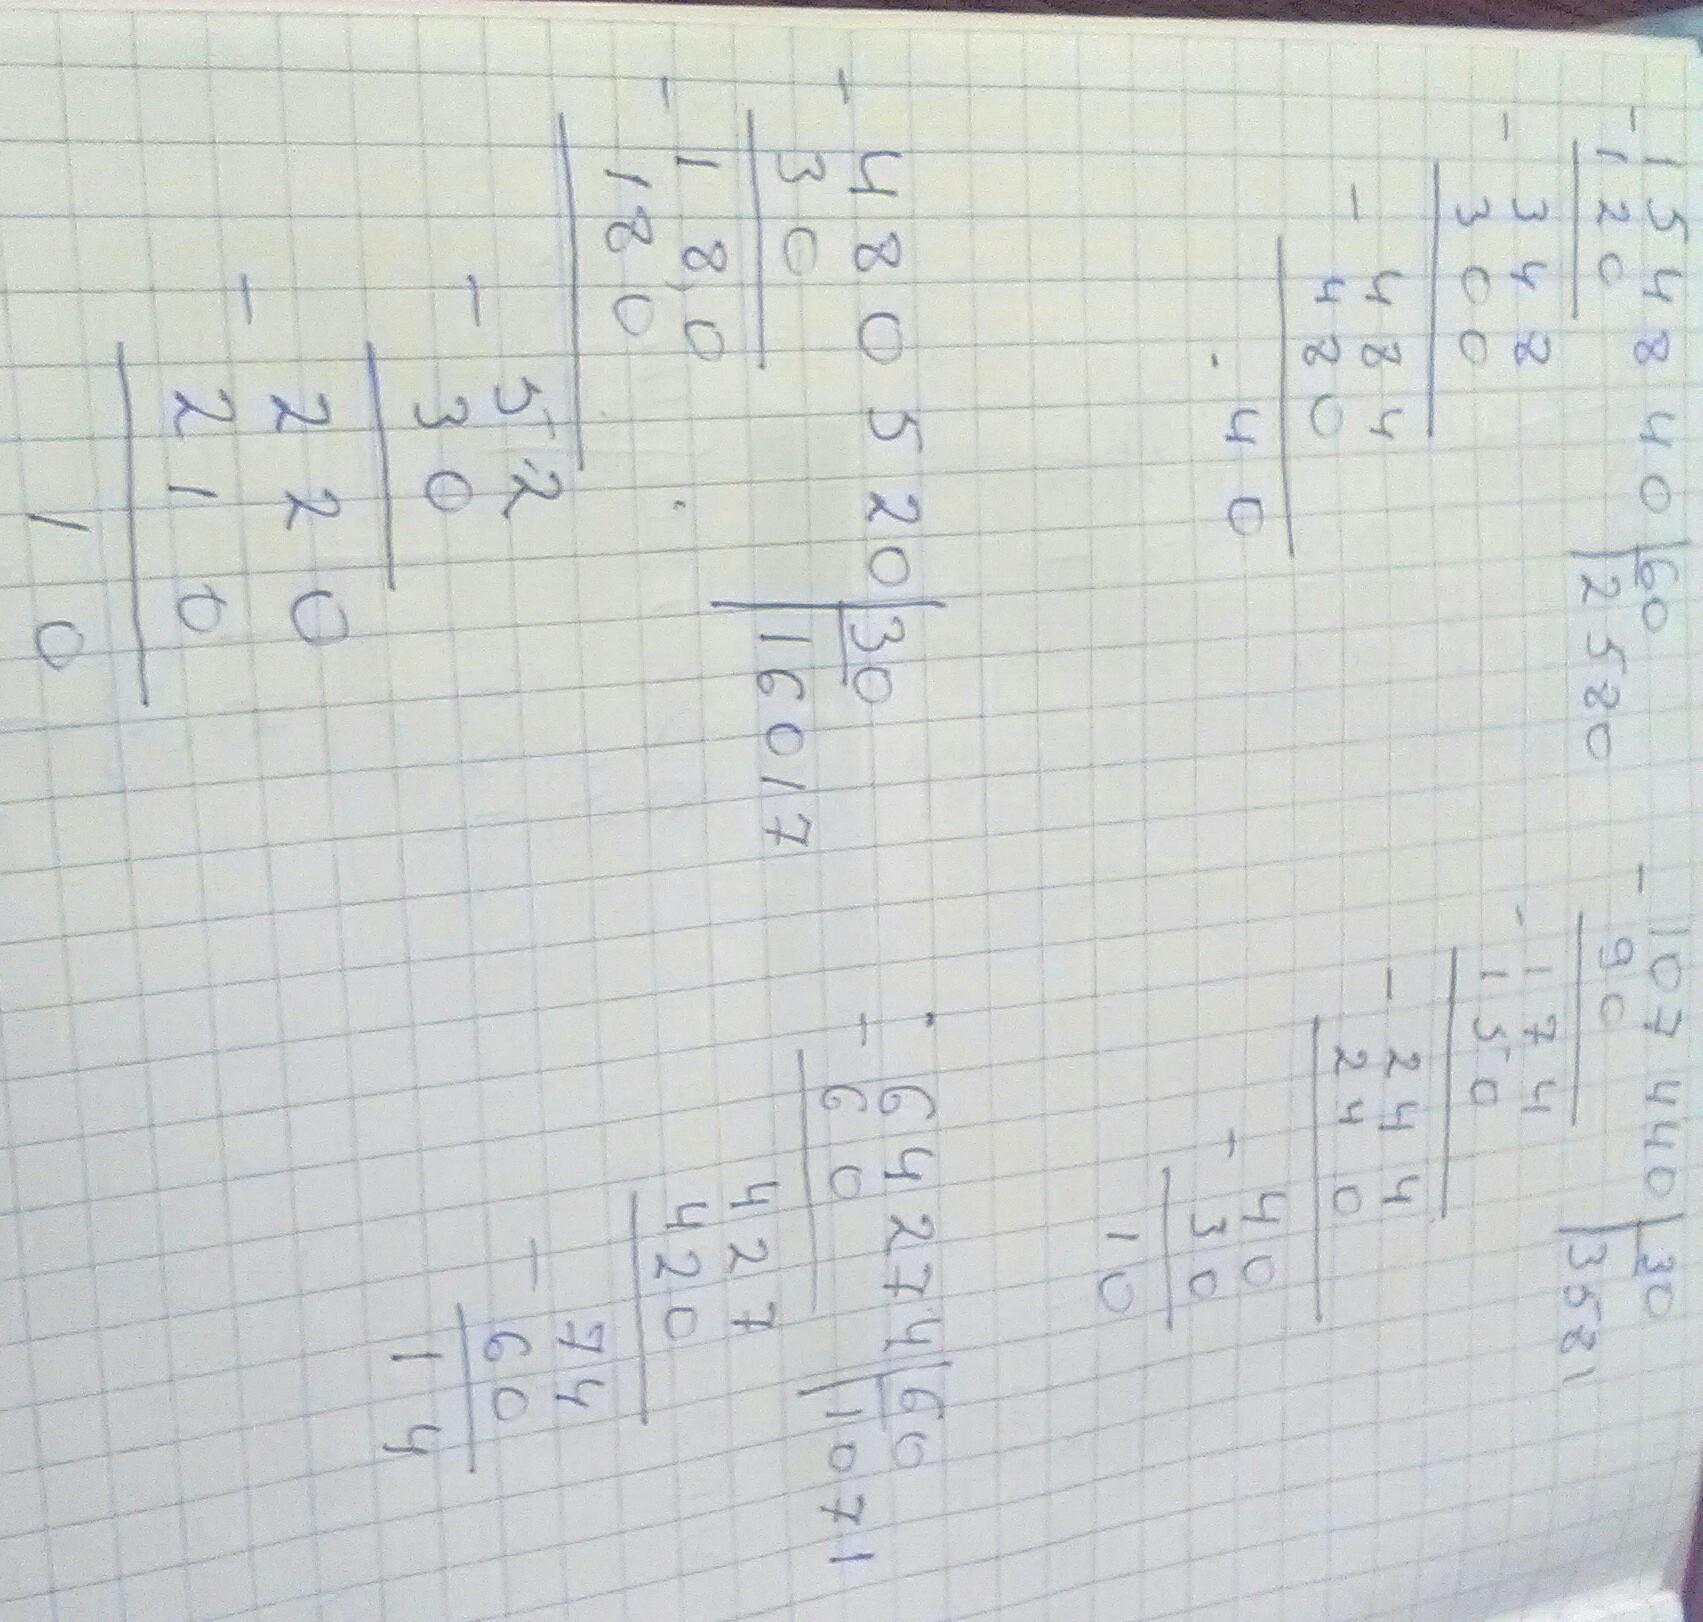 - 154840 | 60
120 | 2580
- 348
300
- 484
480
40
- 107440 | 30
90 | 3581
- 174
150
- 244
240
- 40
30
10
- 480520 | 30
30 | 16017
- 180
180
- 52
30
- 220
210
10
- 64274 | 60
60 | 1071
427
420
- 74
60
14